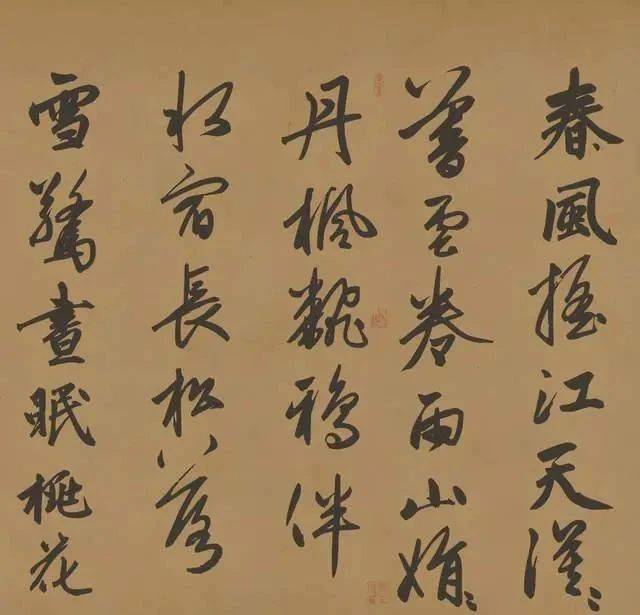 春風搖江天漠〻
暮雲卷雨山娟〻
丹楓飜鴉伴
水宿長松落
雪驚晝眠桃花